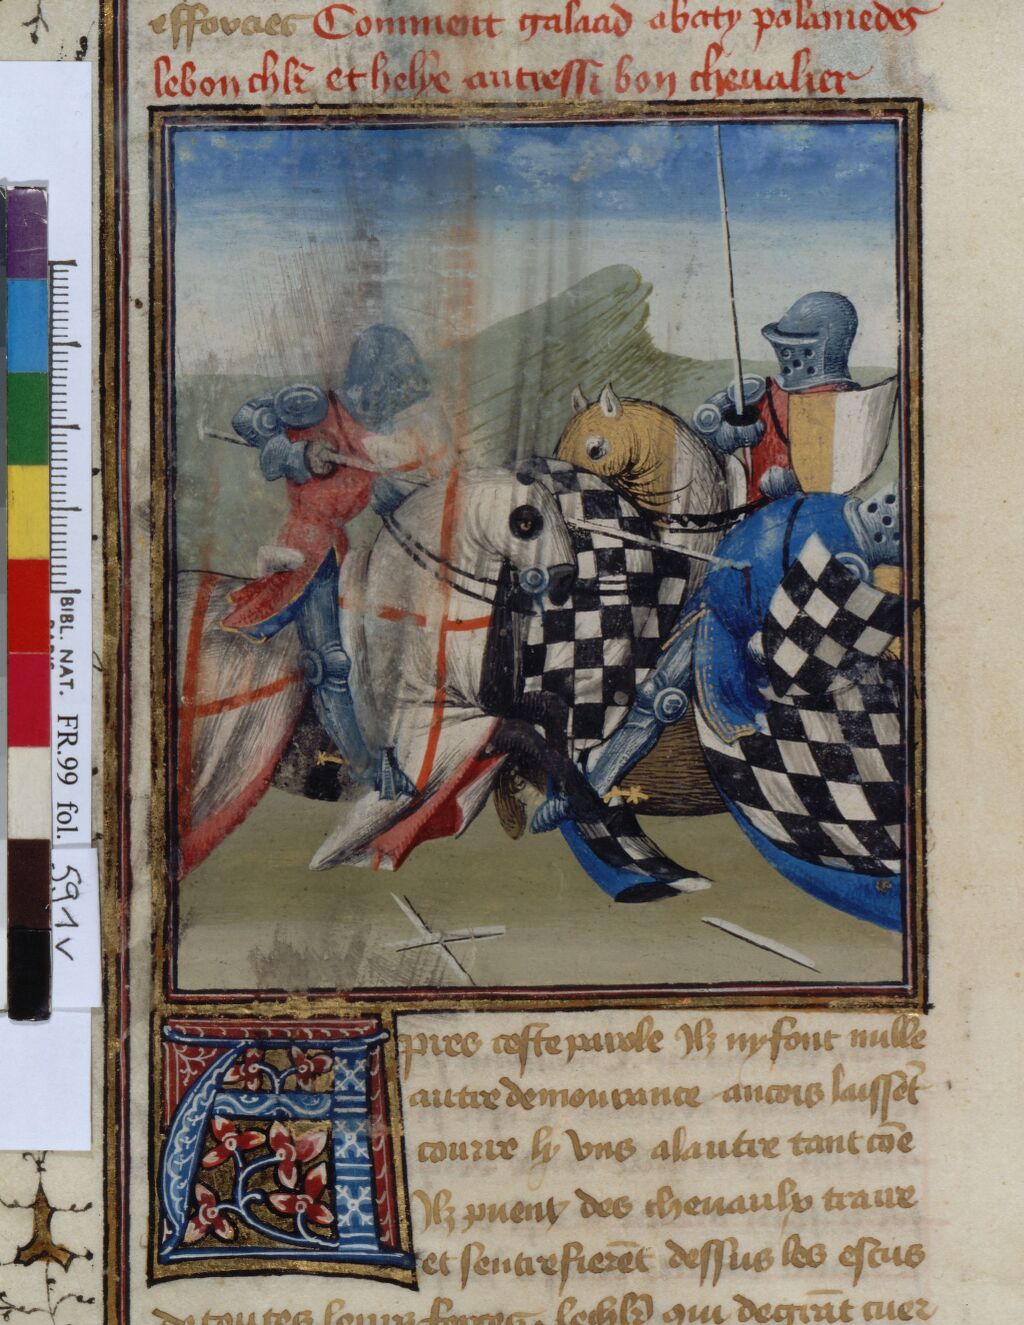 effoꝛcies Comment galaad abaty palamedes
lebon chlr̄ et helye autressi bon cheualier
BIBL. NAT. FR.99 fol. 591v
PARIS
Apres ceste parole Ilz ny font nulle
autre demourance ancois laissēt
courre ly vns a lautre tant cōe
Ilz puent des cheuaulx traire
et sentrefierēt dessus les escus
de toutes leurs forces lechlr̄ qui